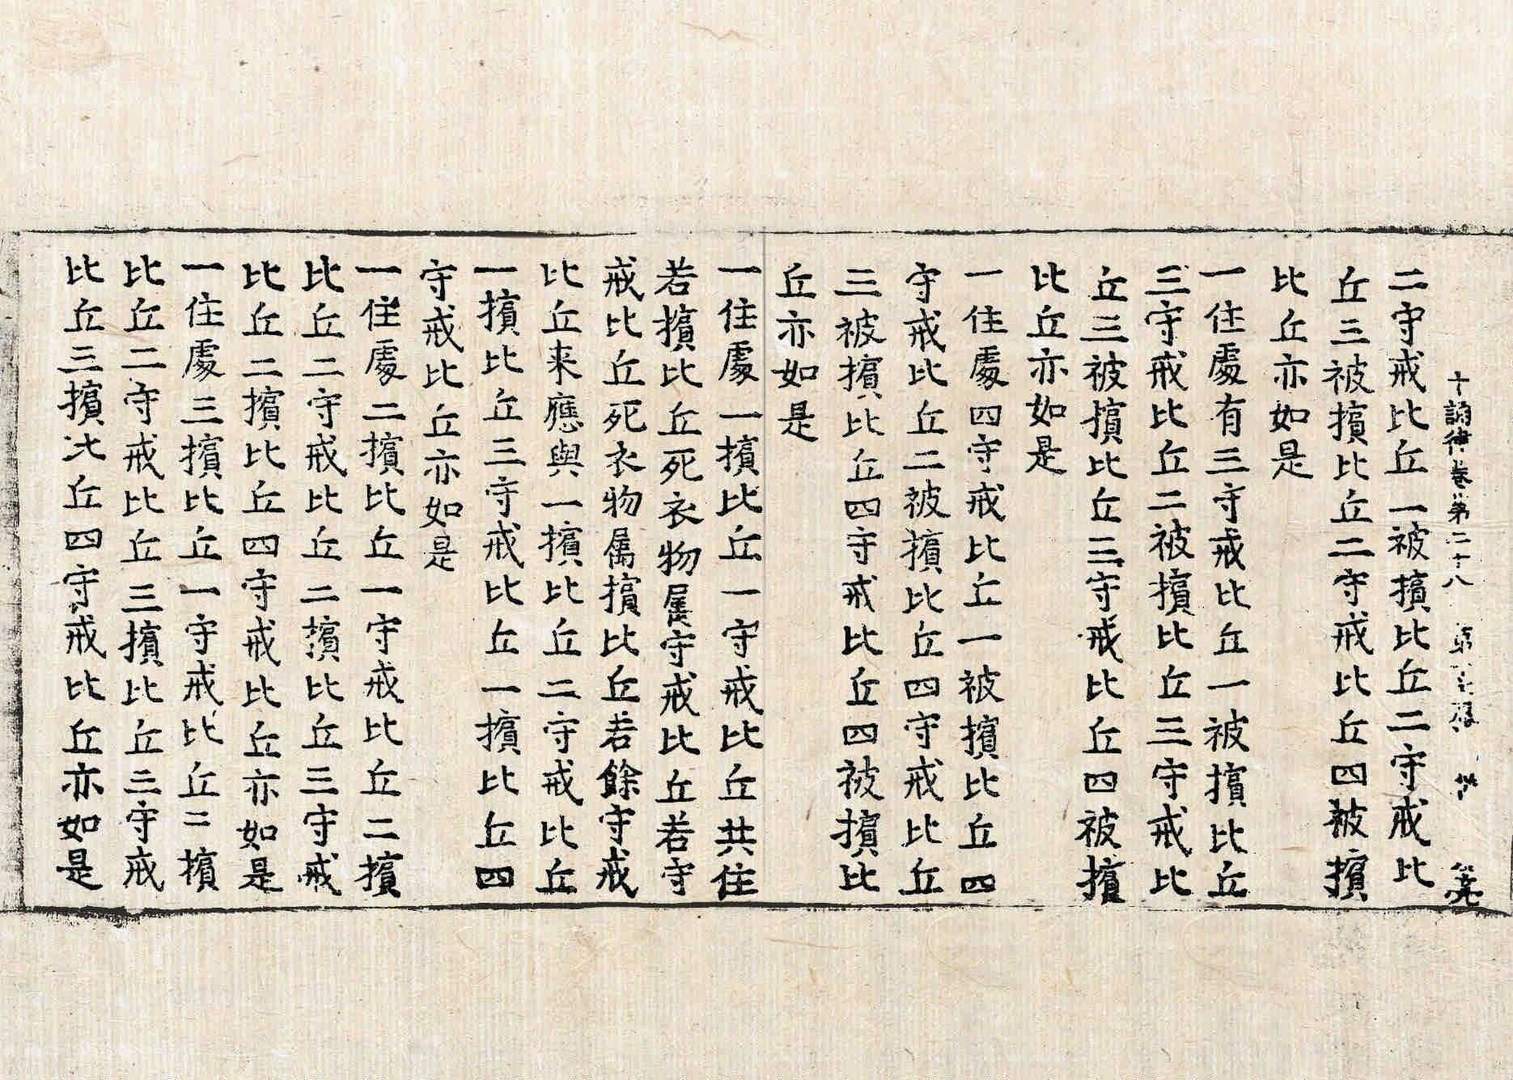 十誦律卷第二十八 第 張
二守戒比丘一被擯比丘二守戒比
丘三被擯比丘二守戒比丘四被擯
比丘亦如是
一住處有三守戒比丘一被擯比丘
三守戒比丘二被擯比丘三守戒比
丘三被擯比丘三守戒比丘四被擯
比丘亦如是
一住處四守戒比丘一被擯比丘四
守戒比丘二被擯比丘四守戒比丘
三被擯比丘四守戒比丘四被擯比
丘亦如是
一住處一擯比丘一守戒比丘共住
若擯比丘死衣物属守戒比丘若守
戒比丘死衣物属擯比丘若餘守戒
比丘来應與一擯比丘二守戒比丘
一擯比丘三守戒比丘一擯比丘四
守戒比丘亦如是
一住處二擯比丘一守戒比丘二擯
比丘二守戒比丘二擯比丘三守戒
比丘二擯比丘四守戒比丘亦如是
一住處三擯比丘一守戒比丘二擯
比丘二守戒比丘三擯比丘三守戒
比丘三擯比丘四守戒比丘亦如是